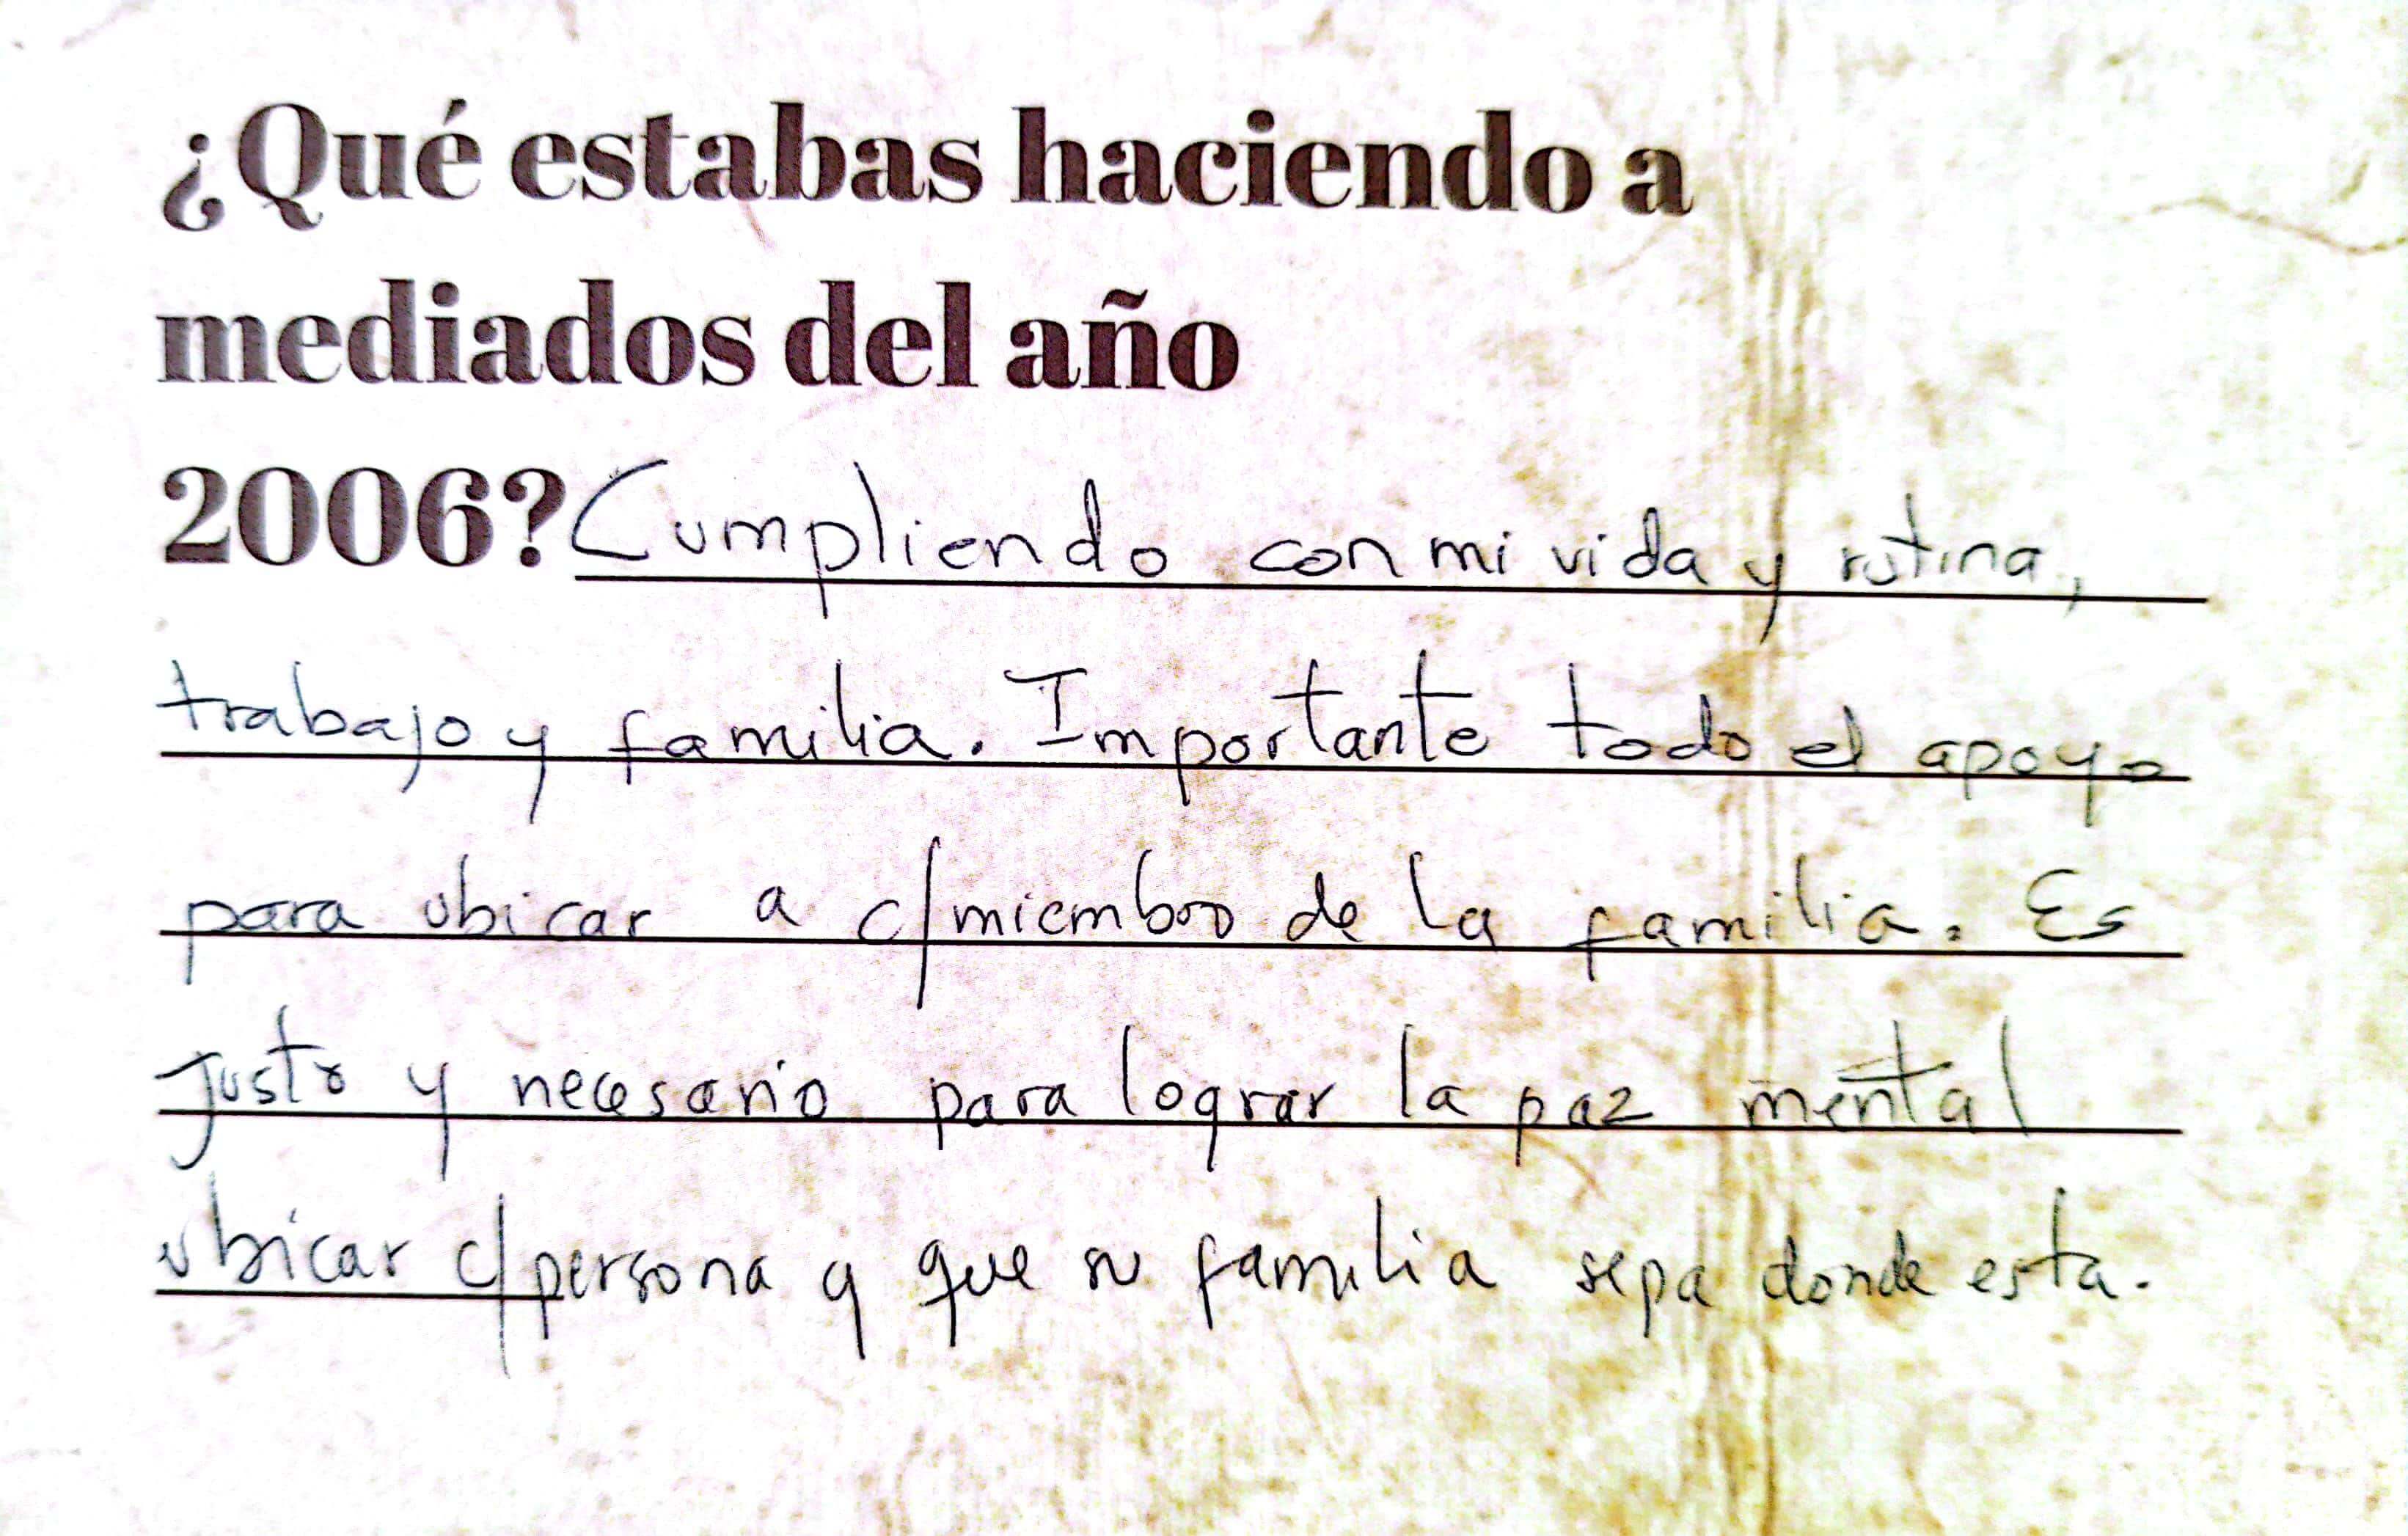 ¿Qué estabas haciendo a
mediados del año
2006? Cumpliendo con mi vida y rutina,
trabajo y familia. Importante todo el apoyo
para ubicar a c/miembro de la familia. Es
justo y necesario para lograr la paz mental
ubicar c/persona y que su familia sepa donde esta.